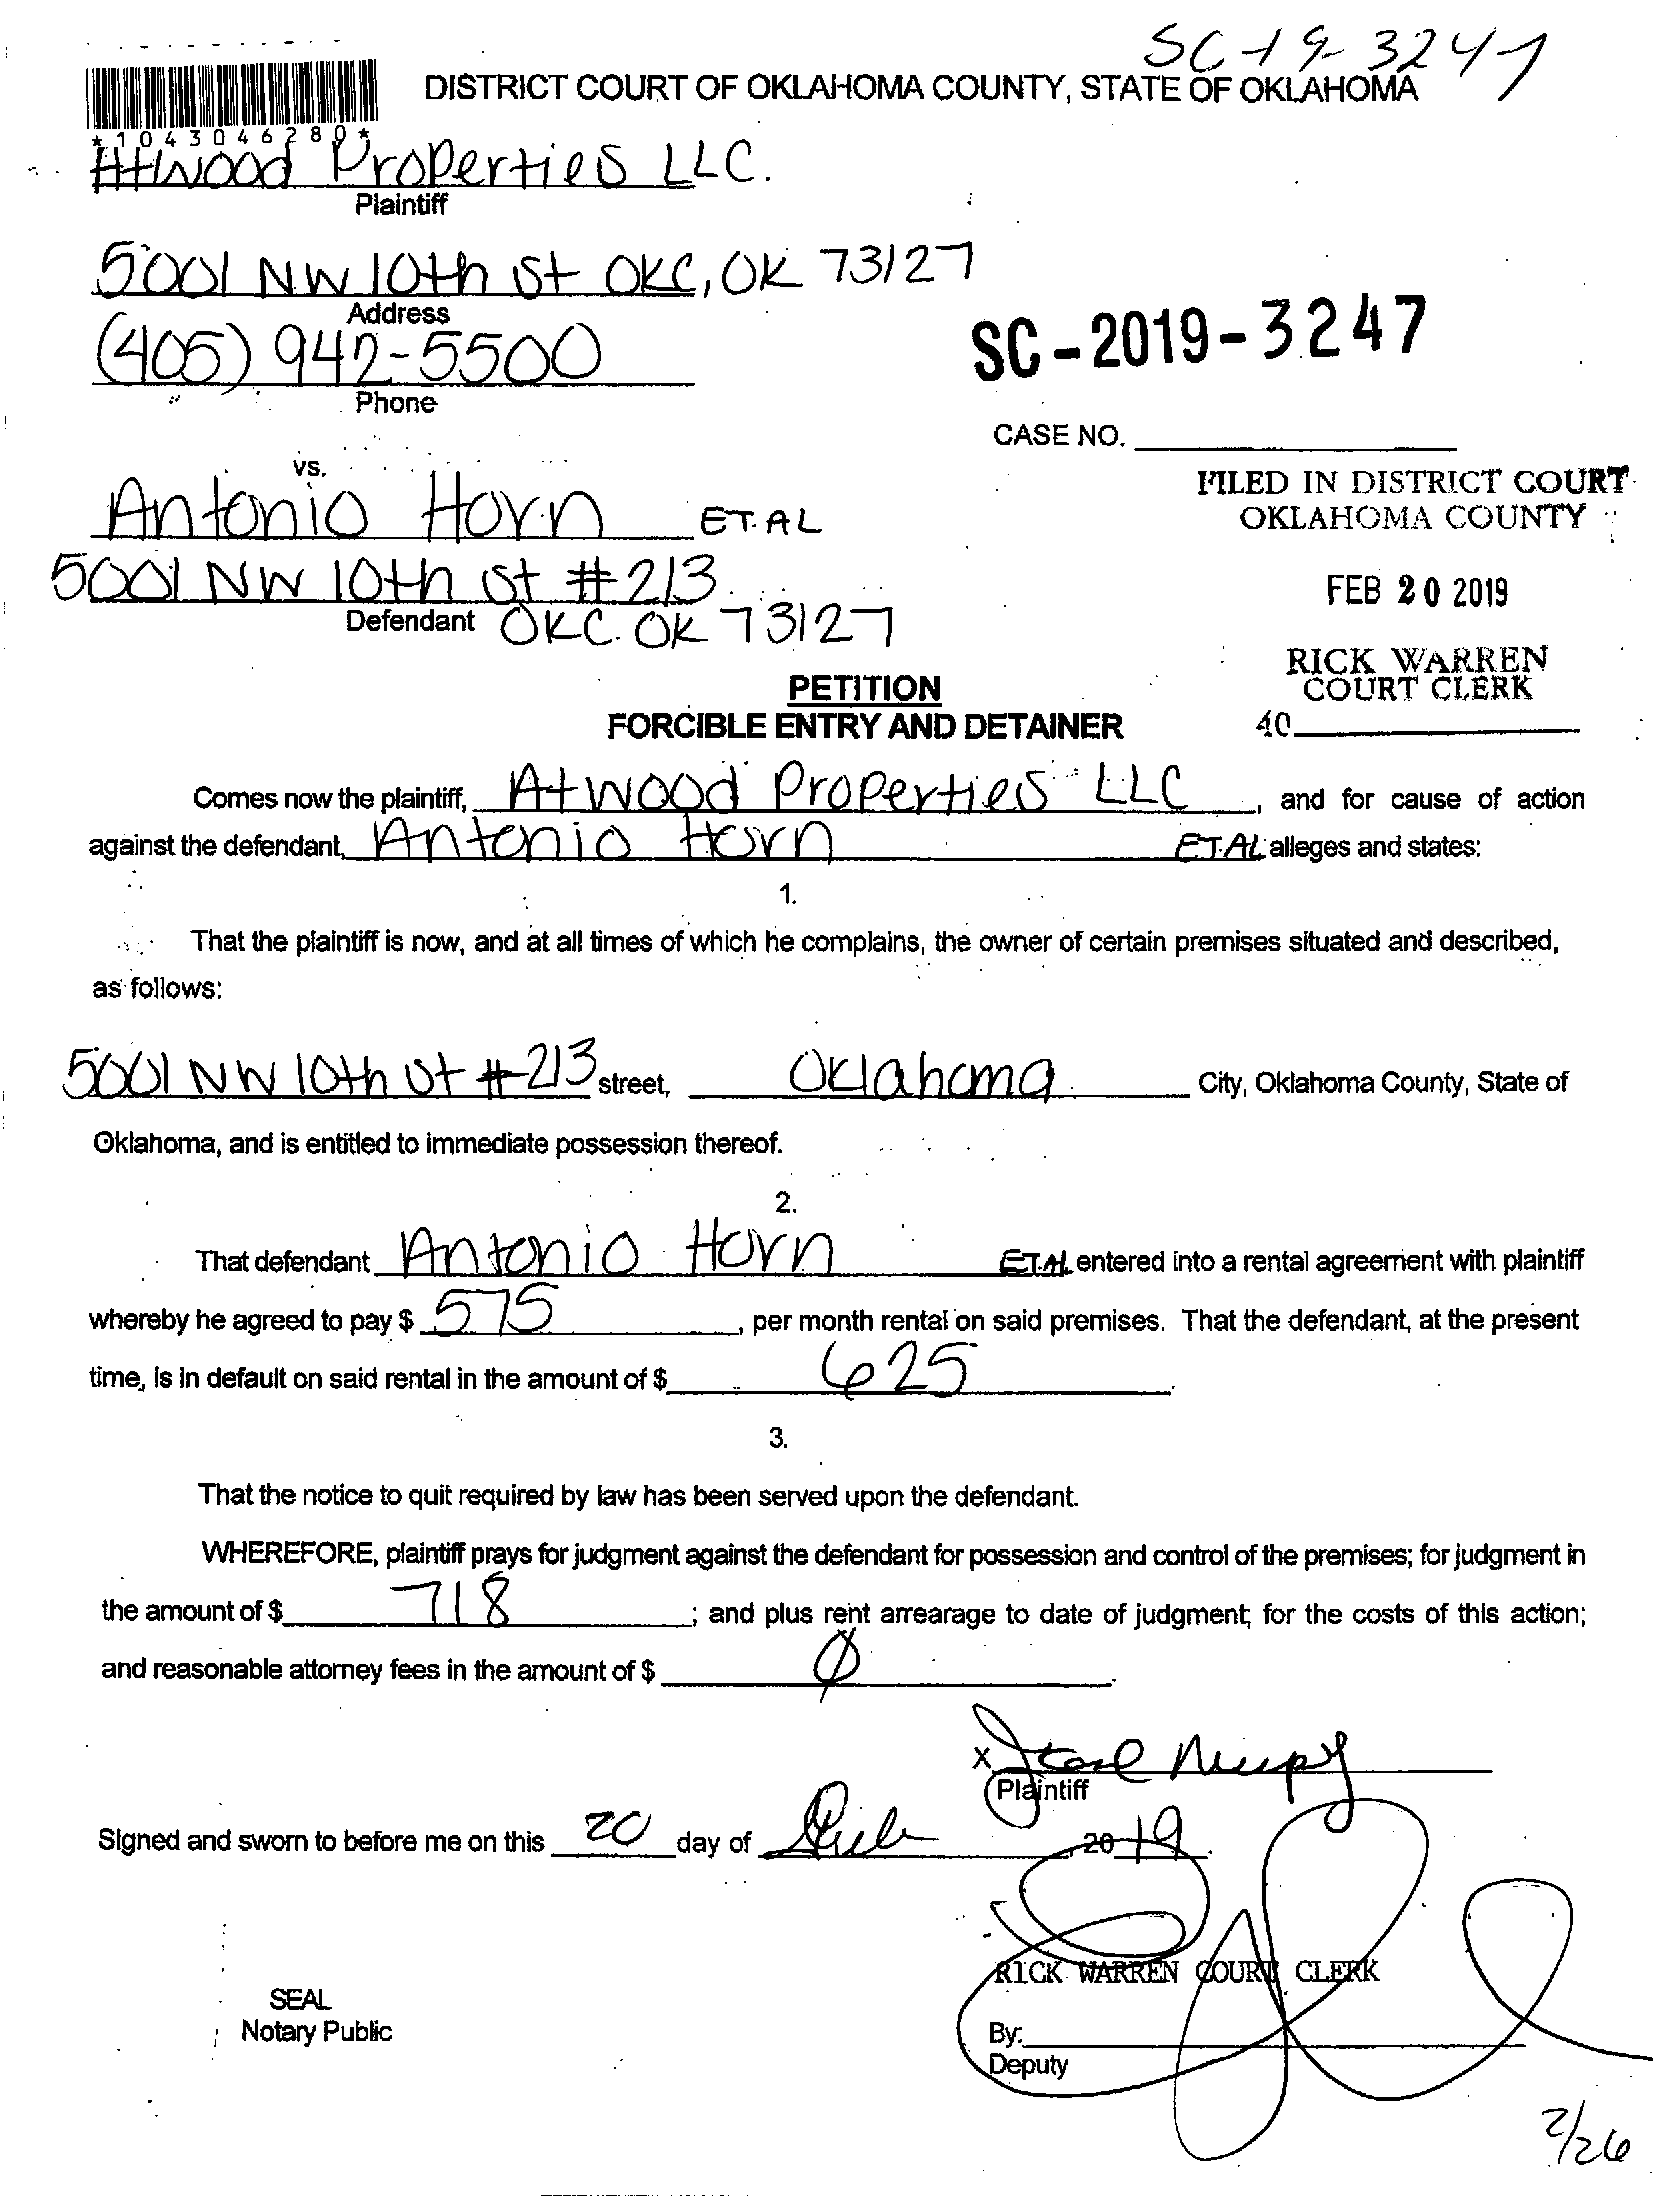 SC-19-3247
DISTRICT COURT OF OKLAHOMA COUNTY, STATE OF OKLAHOMA
*1043046280*
Atwood Properties LLC.
Plaintiff
5001 NW 10th St OKC, OK 73127
Address
(405) 942-5500
Phone
SC-2019-3247
CASE NO.
vs.
FILED IN DISTRICT COURT
OKLAHOMA COUNTY
Antonio Horn ET.AL
5001 NW 10th St #213
FEB 20 2019
Defendant OKC. OK 73127
RICK WARREN
COURT CLERK
40
PETITION
FORCIBLE ENTRY AND DETAINER
Comes now the plaintiff, Atwood Properties LLC, and for cause of action
against the defendant, Antonio Horn ET.AL alleges and states:
1.
That the plaintiff is now, and at all times of which he complains, the owner of certain premises situated and described,
as follows:
5001 NW 10th St #213 street, Oklahoma City, Oklahoma County, State of
Oklahoma, and is entitled to immediate possession thereof.
2.
That defendant Antonio Horn ET.AL entered into a rental agreement with plaintiff
whereby he agreed to pay $ 575, per month rental on said premises. That the defendant, at the present
time, is in default on said rental in the amount of $ 625.
3.
That the notice to quit required by law has been served upon the defendant.
WHEREFORE, plaintiff prays for judgment against the defendant for possession and control of the premises; for judgment in
the amount of $ 718; and plus rent arrearage to date of judgment; for the costs of this action;
and reasonable attorney fees in the amount of $ Ø.
X
Plaintiff
Signed and sworn to before me on this 20 day of Feb, 2019.
RICK WARREN COURT CLERK
SEAL
Notary Public
By:
Deputy
2/26